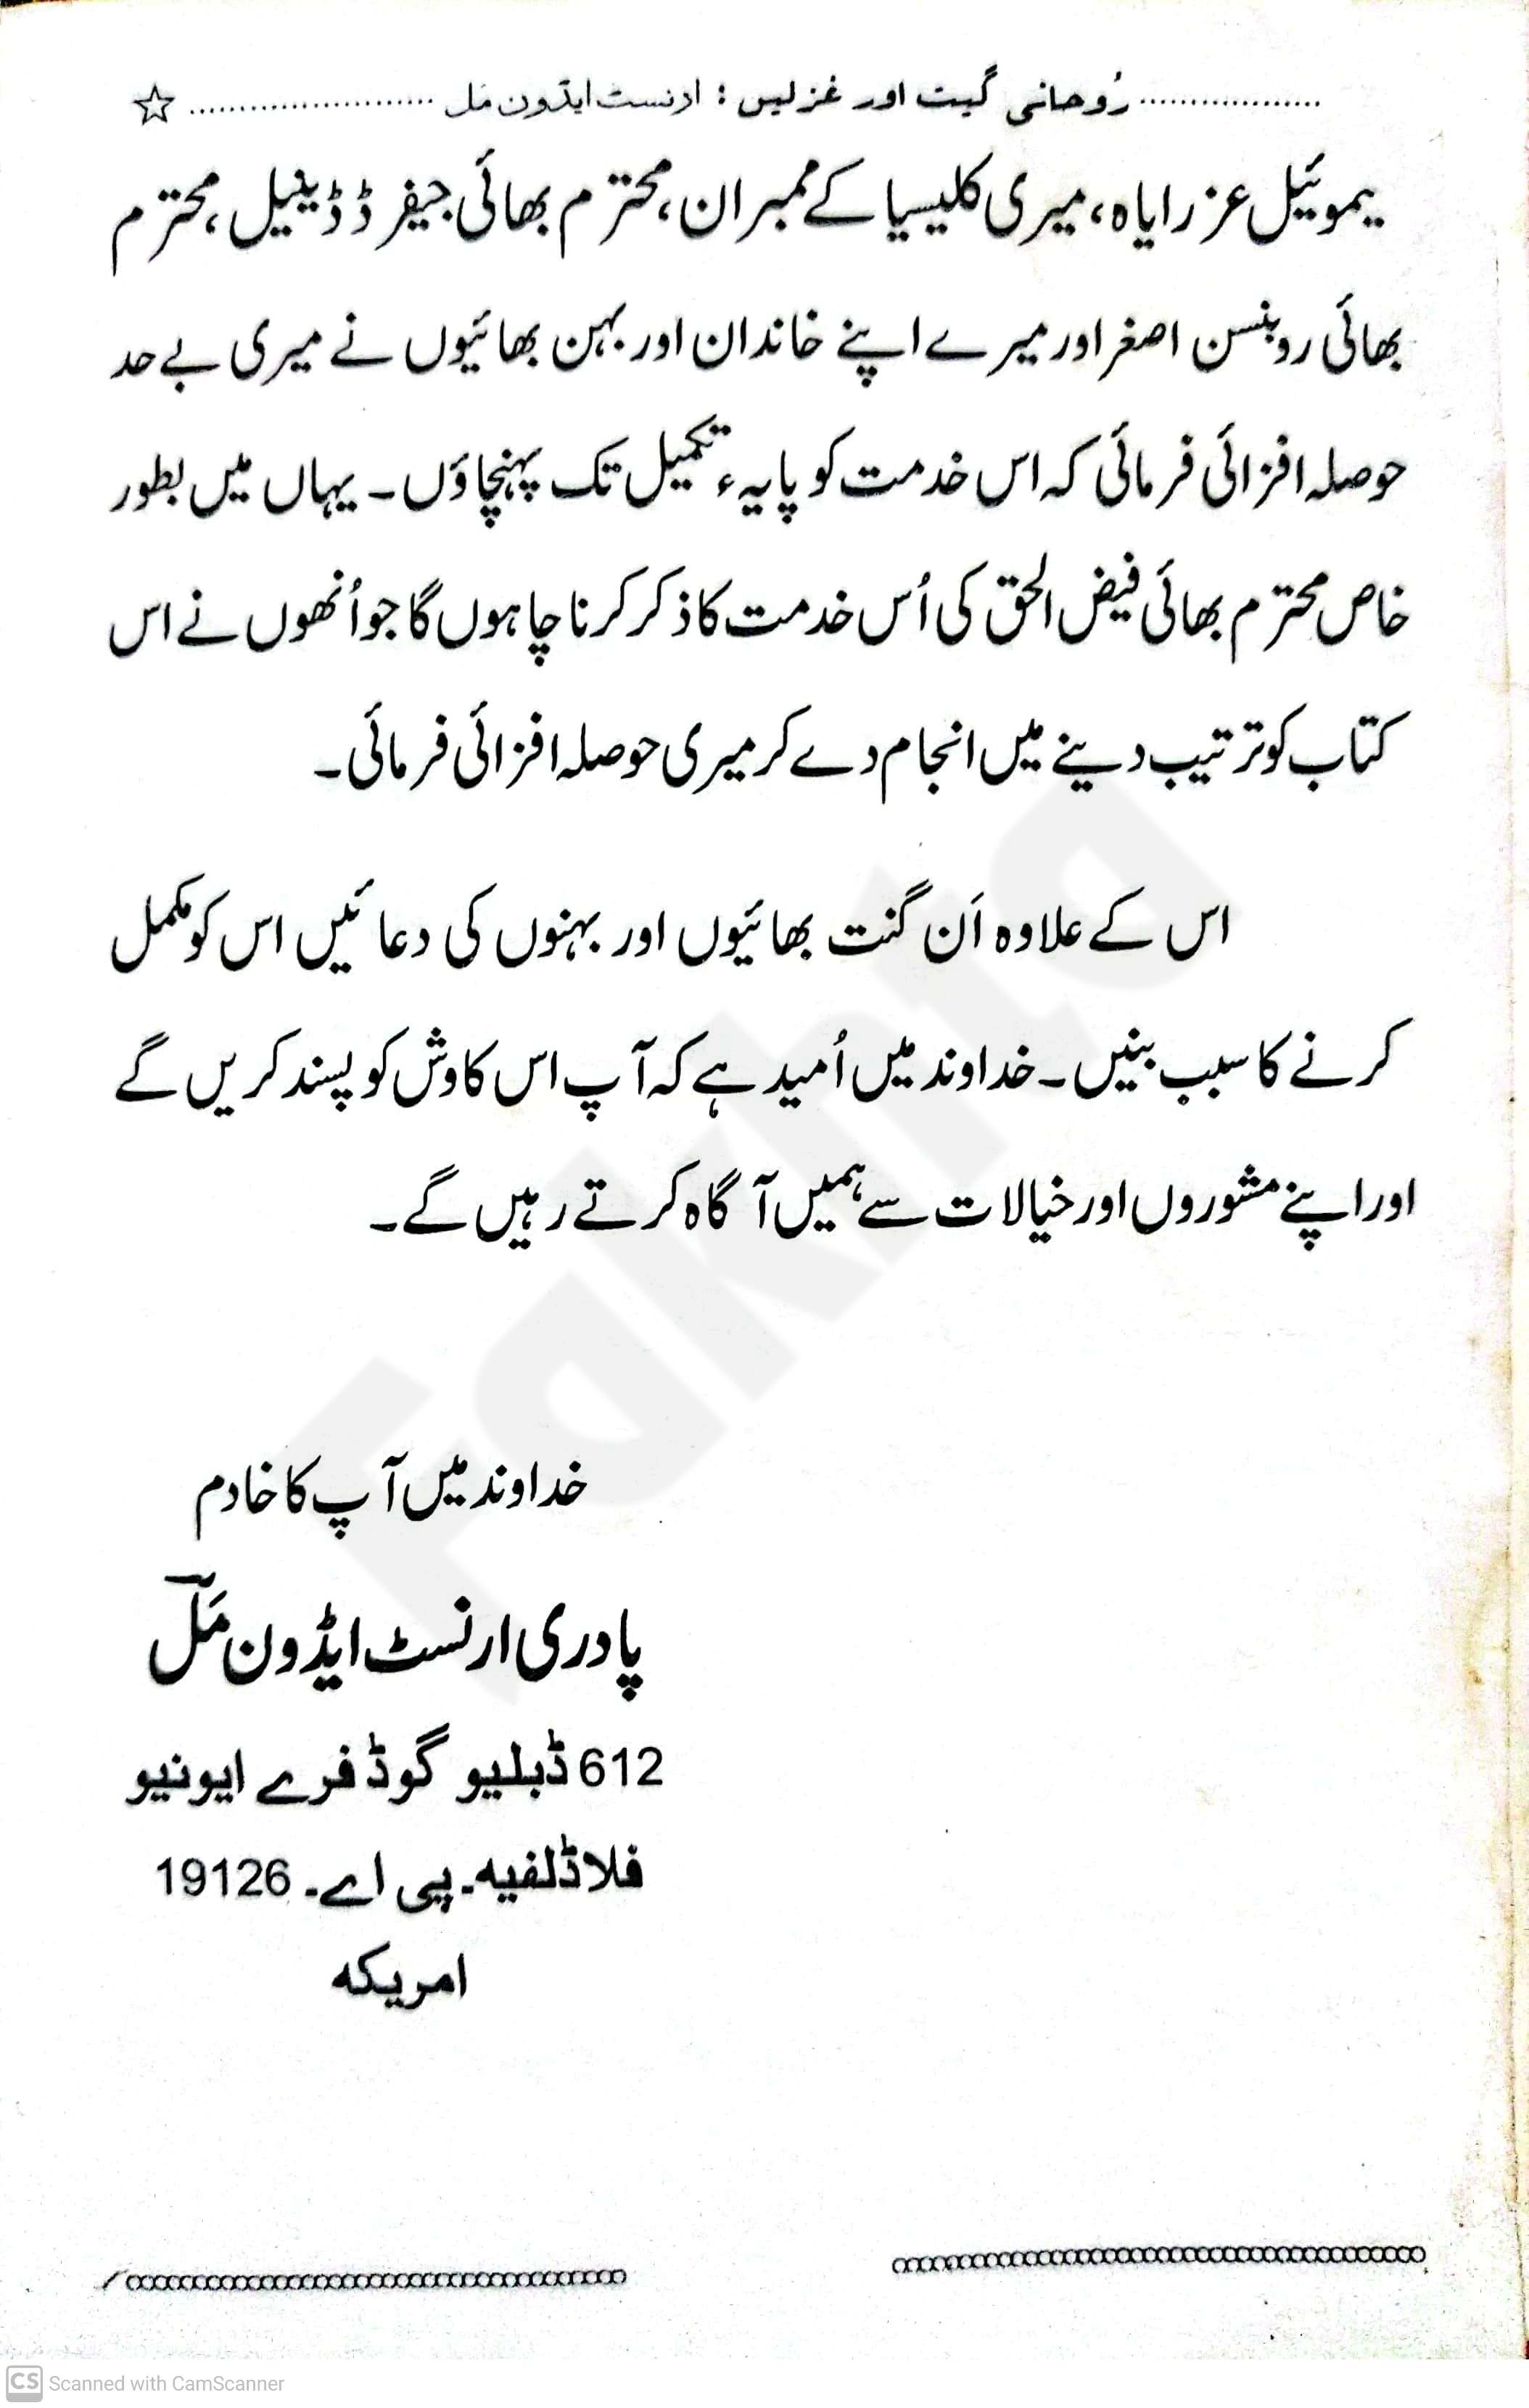 ..................رُوحانی گیت اور غزلیں : ارنسٹ ایڈون مَل........................☆
یموئیل عزرایاہ، میری کلیسیا کے ممبران، محترم بھائی جیفرڈ ڈینیل، محترم
بھائی روبنسن اصغر اور میرے اپنے خاندان اور بہن بھائیوں نے میری بے حد
حوصلہ افزائی فرمائی کہ اس خدمت کو پایہء تکمیل تک پہنچاؤں۔ یہاں میں بطور
خاص محترم بھائی فیض الحق کی اُس خدمت کا ذکر کرنا چاہوں گا جو اُنھوں نے اس
کتاب کو ترتیب دینے میں انجام دے کر میری حوصلہ افزائی فرمائی۔
اس کے علاوہ اَن گنت بھائیوں اور بہنوں کی دعائیں اس کو مکمل
کرنے کا سبب بنیں۔ خداوند میں اُمید ہے کہ آپ اس کاوش کو پسند کریں گے
اور اپنے مشوروں اور خیالات سے ہمیں آگاہ کرتے رہیں گے۔
Fakhta
خداوند میں آپ کا خادم
پادری ارنسٹ ایڈون مَلؔ
612 ڈبلیو گوڈ فرے ایونیو
فلاڈلفیہ۔ پی اے۔ 19126
امریکہ
CS Scanned with CamScanner